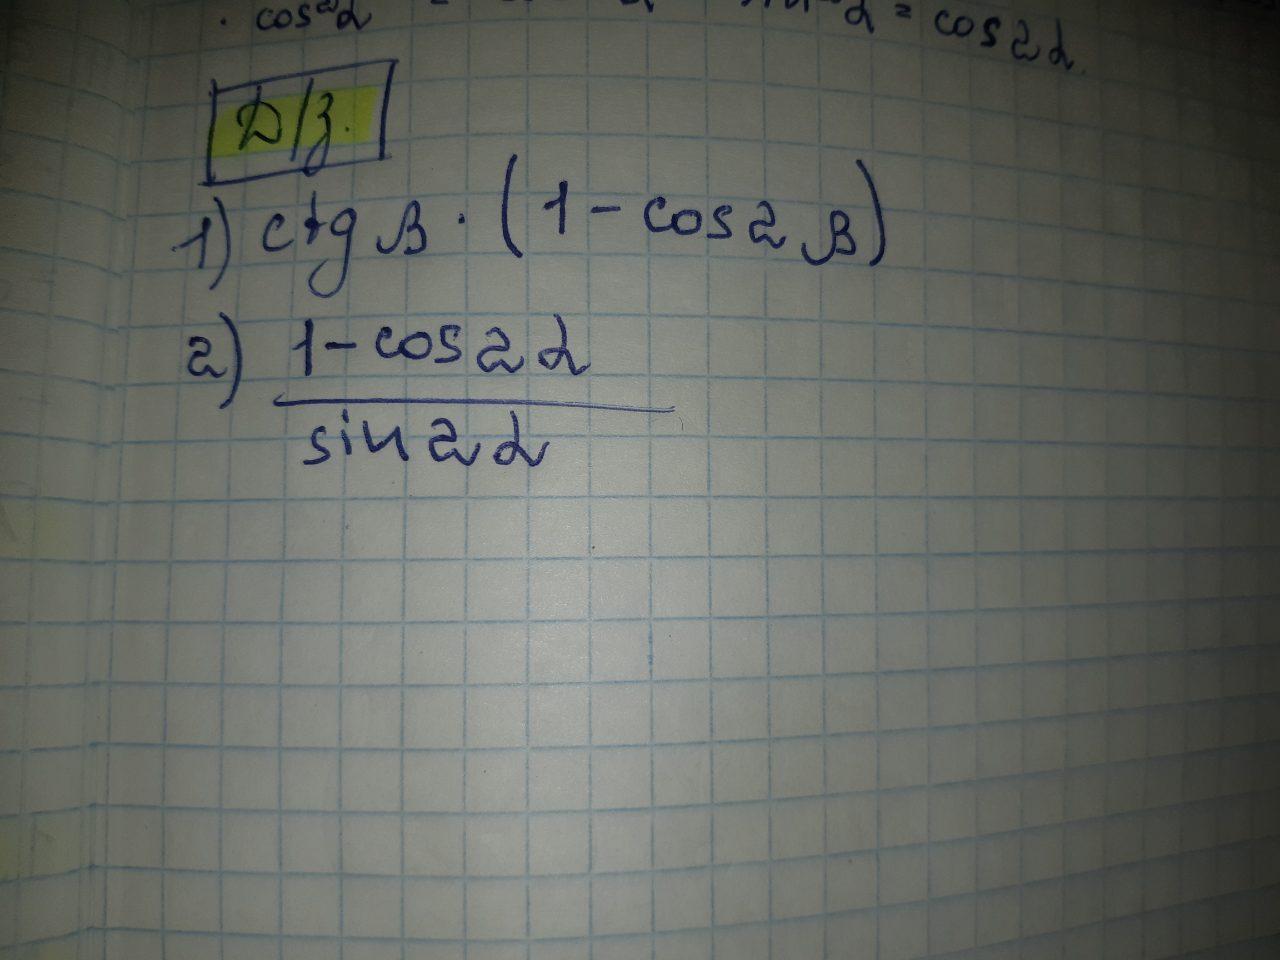 · cos²α = α = cos2α.
Д/з.
1) ctg β · (1 - cos2β)
2) 1 - cos2α
sin2α